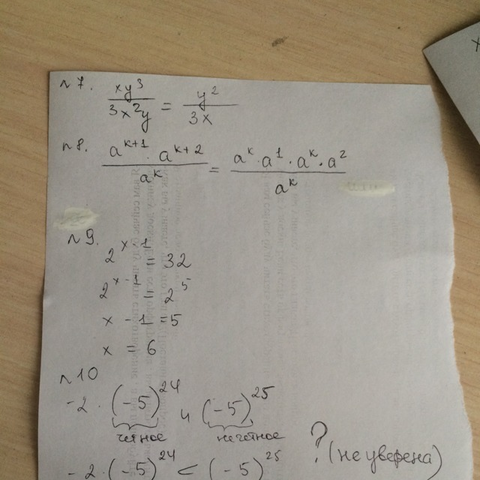 n7. xy³/3x²y = y²/3x
n8. a^(k+1) · a^(k+2)/a^k = a^k · a¹ · a^k · a²/a^k
n9.
2^(x-1) = 32
2^(x-1) = 2⁵
x - 1 = 5
x = 6
n10
-2 · (-5)²⁴ и (-5)²⁵
четное нечетное
-2 · (-5)²⁴ < (-5)²⁵ ? (не уверена)